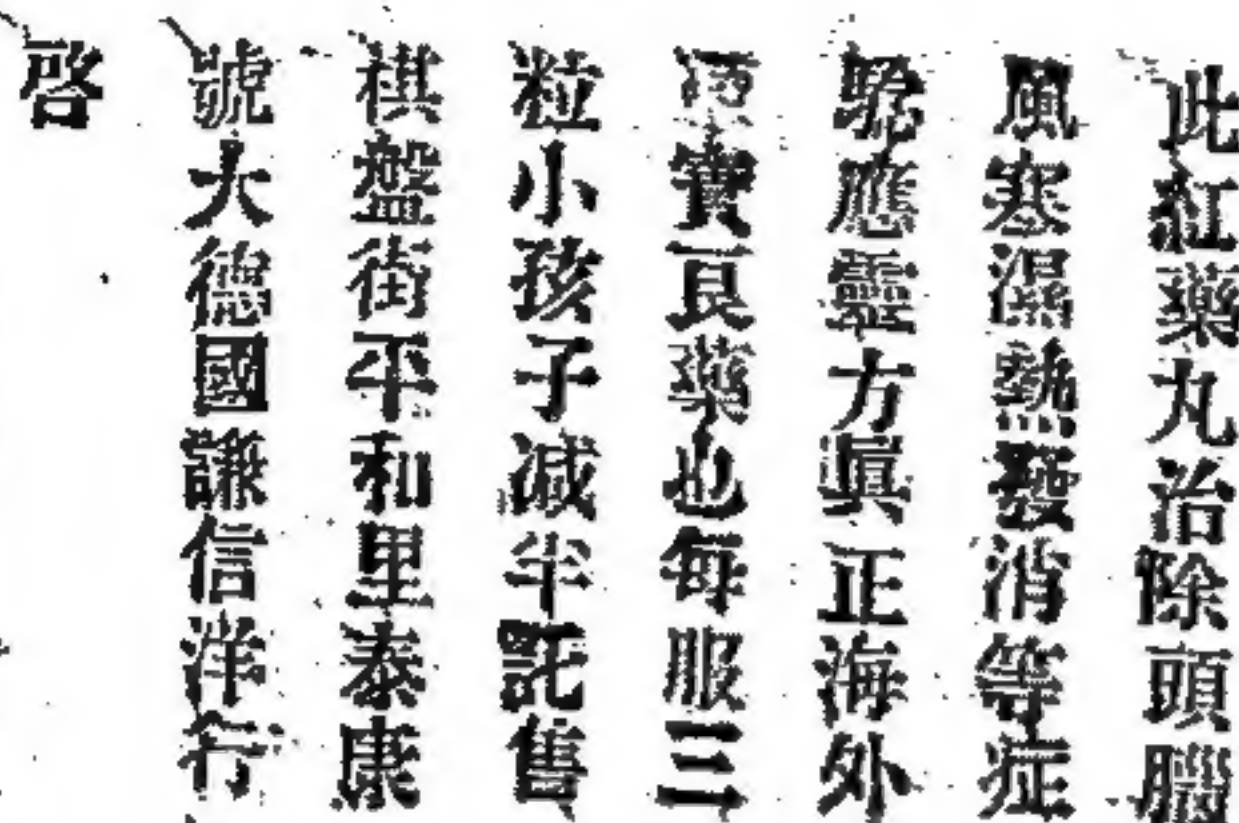 此紅藥丸治除頭腦
風寒濕熱發消等症
騐應靈方眞正海外
寶良藥也每服三
粒小孩子減半託售
祺盤街平和里泰康
號大德國謙信洋行
啓